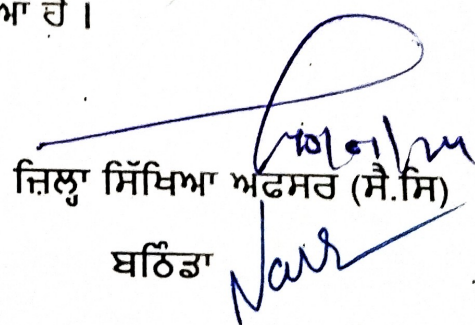 ਆ ਹੈ।
ਜ਼ਿਲ੍ਹਾ ਸਿੱਖਿਆ ਅਫਸਰ (ਸੈ.ਸਿ)
ਬਠਿੰਡਾ